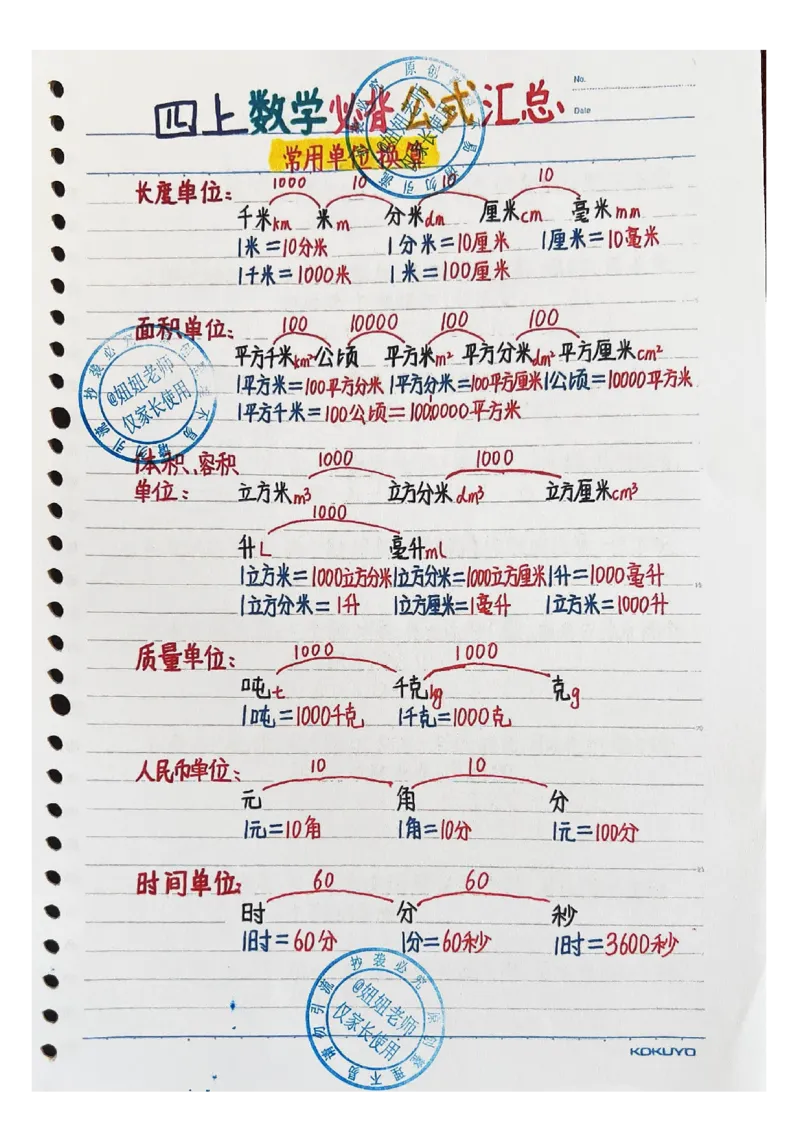 No.
Date
四上数学必背公式汇总
常用单位换算
长度单位: 1000 10 10 10
千米km 米m 分米dm 厘米cm 毫米mm
1米=10分米 1分米=10厘米 1厘米=10毫米
1千米=1000米 1米=100厘米
面积单位: 100 10000 100 100
平方千米km² 公顷 平方米m² 平方分米dm² 平方厘米cm²
1平方米=100平方分米 1平方分米=100平方厘米 1公顷=10000平方米
1平方千米=100公顷=1000000平方米
体积、容积 1000 1000
单位: 立方米m³ 立方分米dm³ 立方厘米cm³
1000
升L 毫升mL
1立方米=1000立方分米 1立方分米=1000立方厘米 1升=1000毫升
1立方分米=1升 1立方厘米=1毫升 1立方米=1000升
质量单位: 1000 1000
吨t 千克kg 克g
1吨=1000千克 1千克=1000克
人民币单位: 10 10
元 角 分
1元=10角 1角=10分 1元=100分
时间单位: 60 60
时 分 秒
1时=60分 1分=60秒 1时=3600秒
@妞妞老师
仅家长使用
原创整理不易请勿引流抄袭必究
KOKUYO